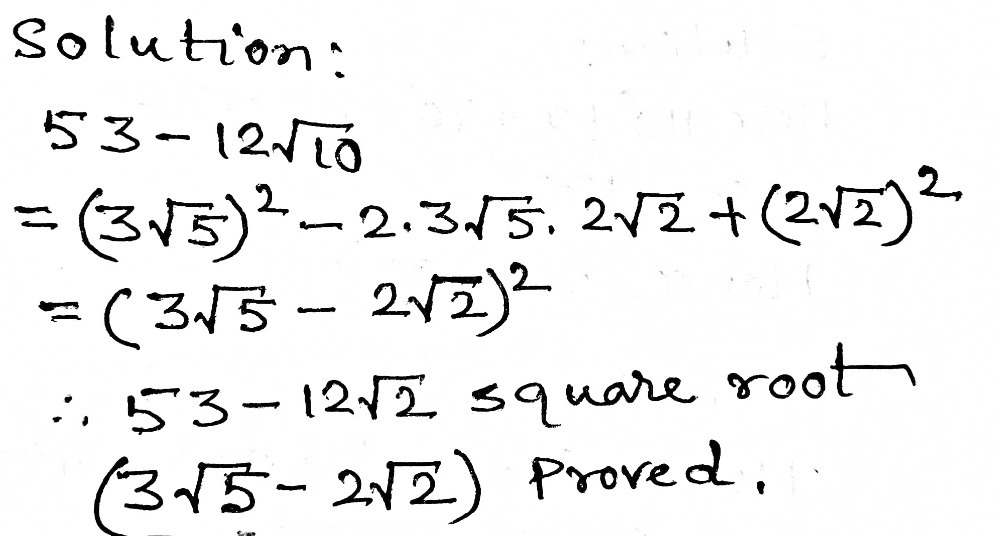 Solution:
53 - 12√10
= (3√5)² - 2.3√5. 2√2 + (2√2)²
= (3√5 - 2√2)²
∴ 53 - 12√2 square root
(3√5 - 2√2) Proved.